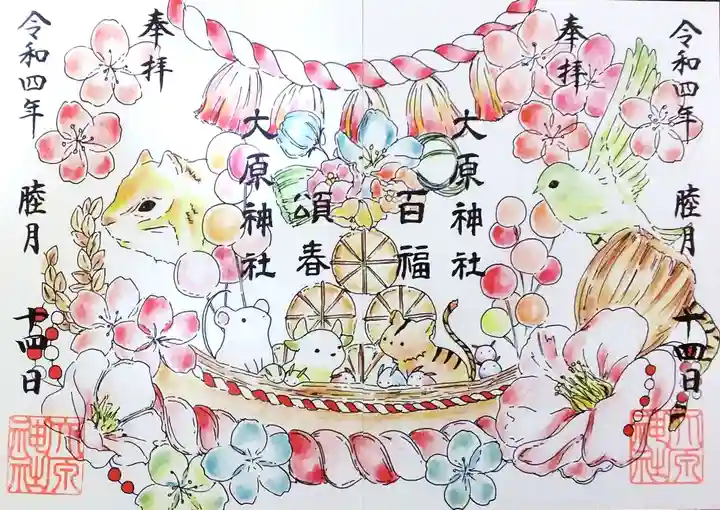 奉拝
令和四年 睦月 十四日
大原神社
百福
頌春
大原神社
奉拝
令和四年 睦月 十四日
大原神社
大原神社